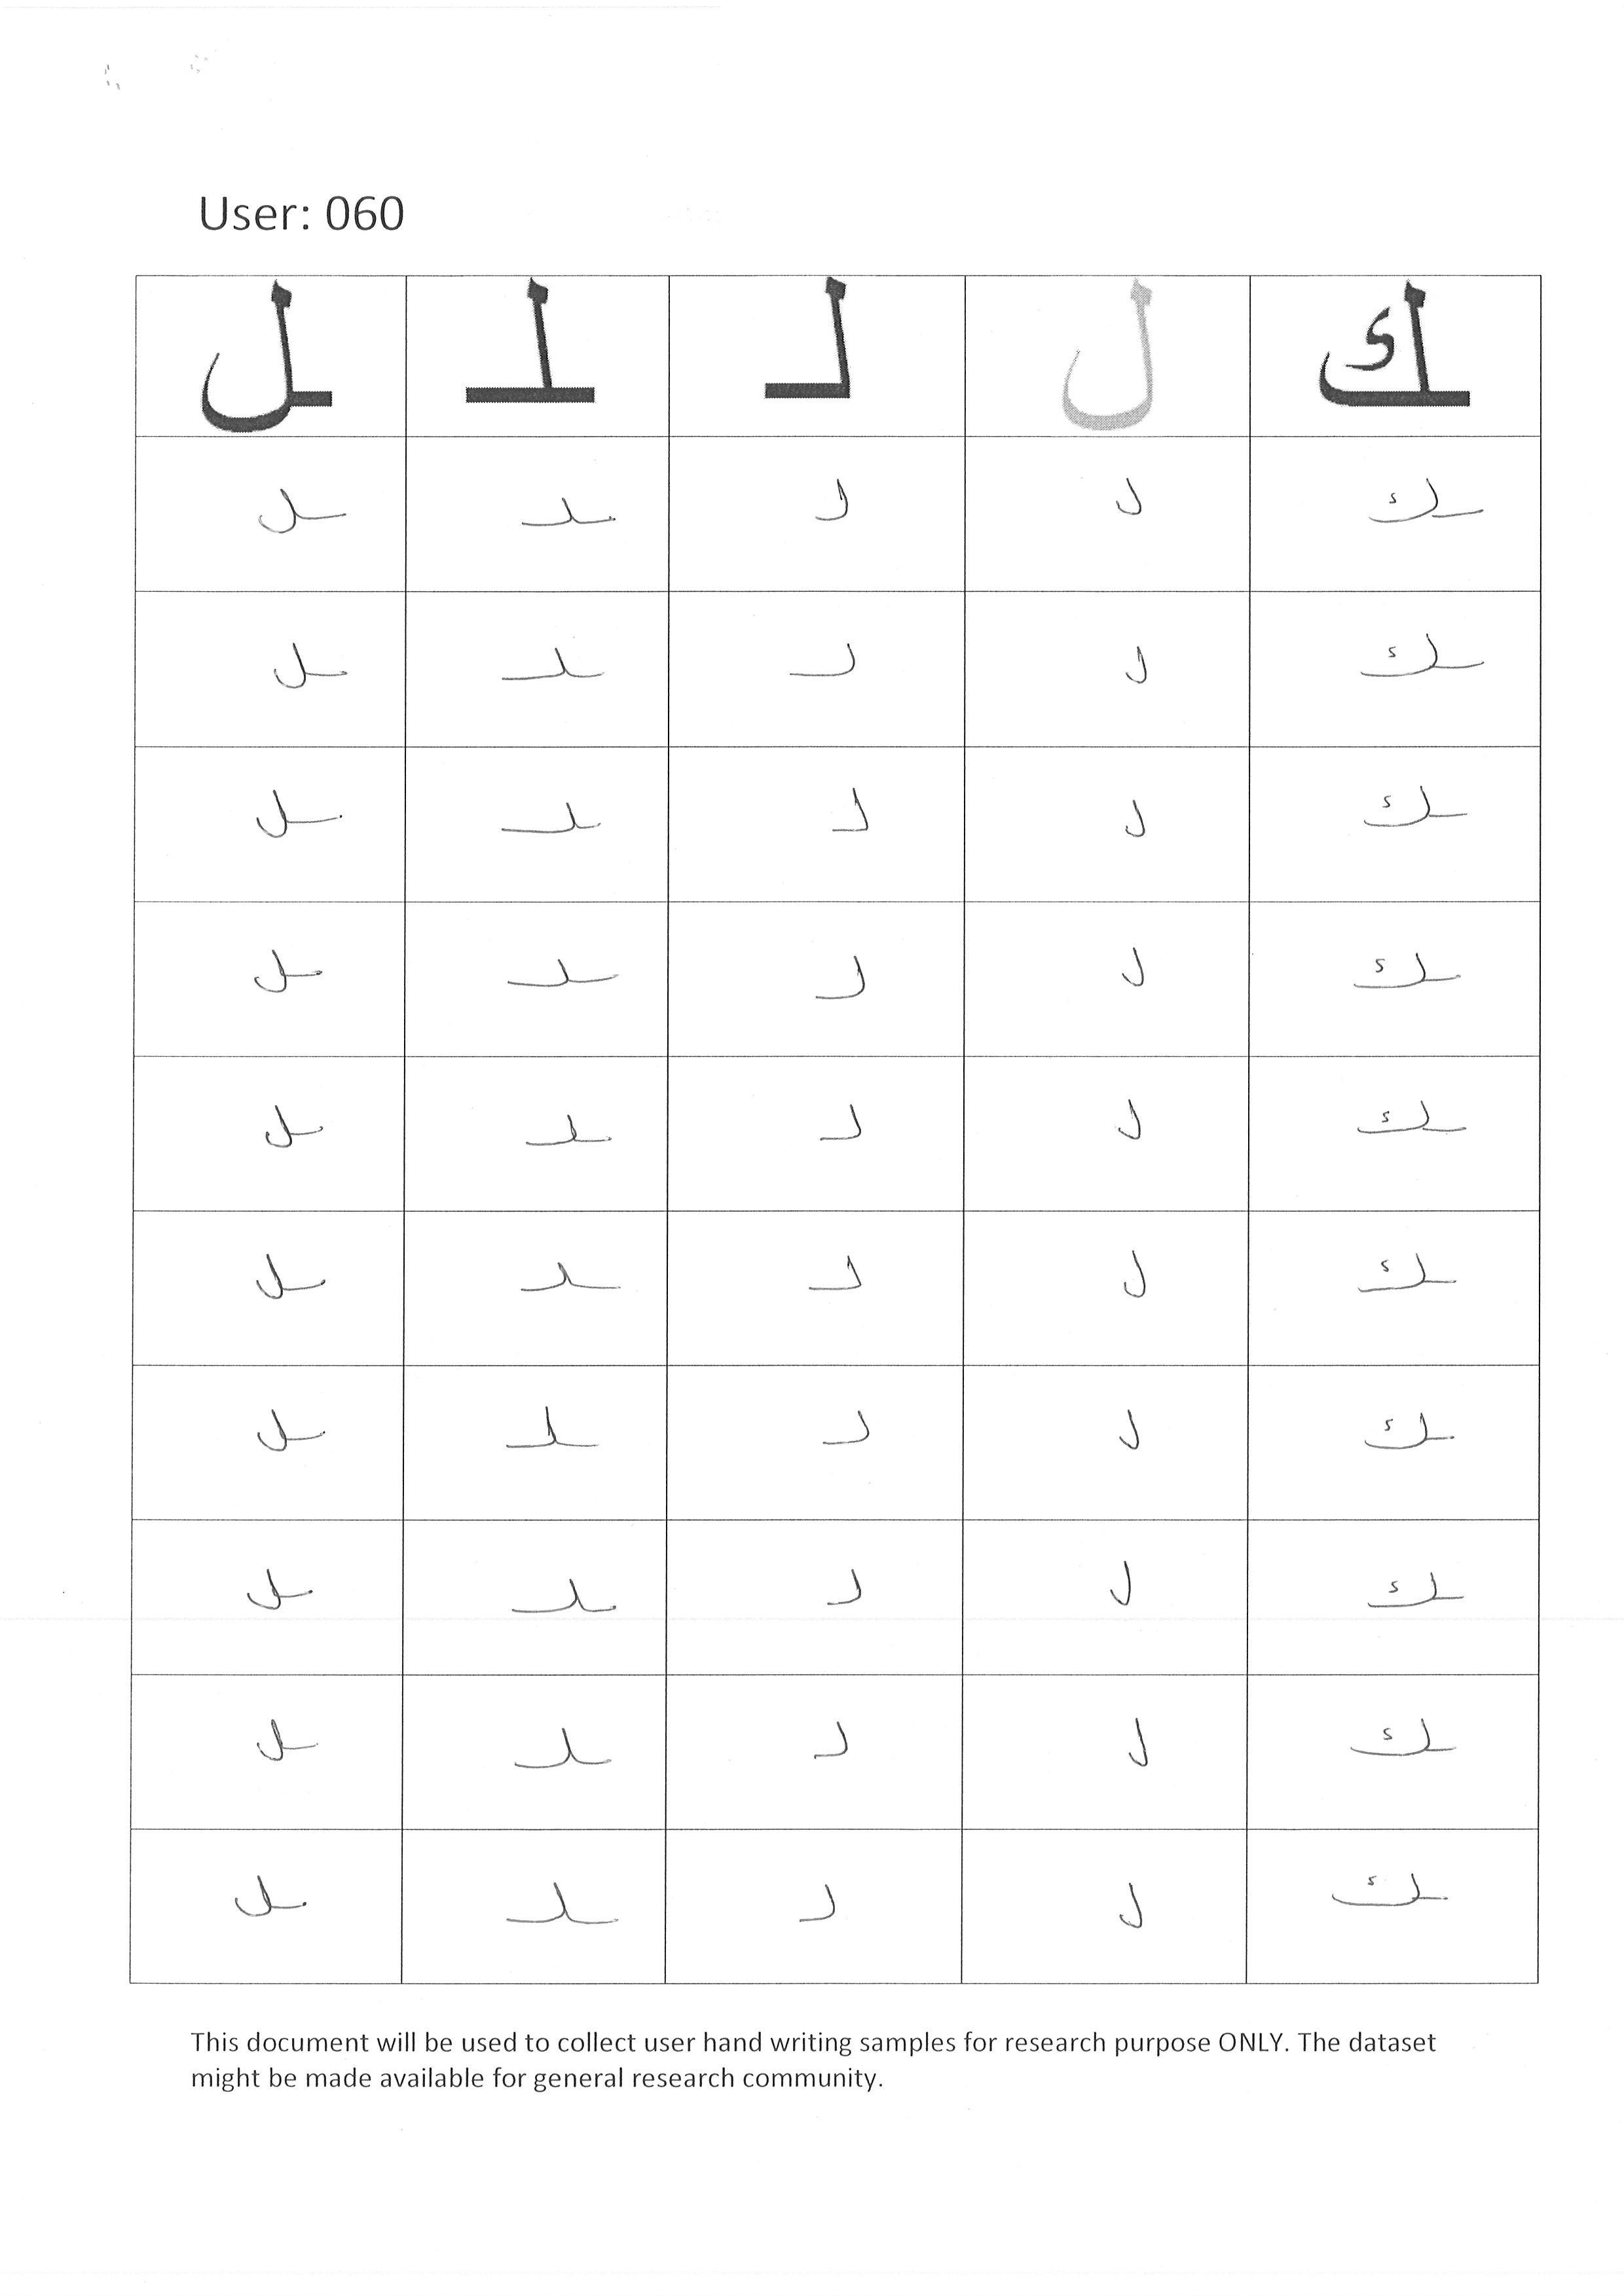 User: 060
ـك ل لـ ـلـ ـل
ـك ل لـ ـلـ ـل
ـك ل لـ ـلـ ـل
ـك ل لـ ـلـ ـل
ـك ل لـ ـلـ ـل
ـك ل لـ ـلـ ـل
ـك ل لـ ـلـ ـل
ـك ل لـ ـلـ ـل
ـك ل لـ ـلـ ـل
ـك ل لـ ـلـ ـل
ـك ل لـ ـلـ ـل
This document will be used to collect user hand writing samples for research purpose ONLY. The dataset
might be made available for general research community.